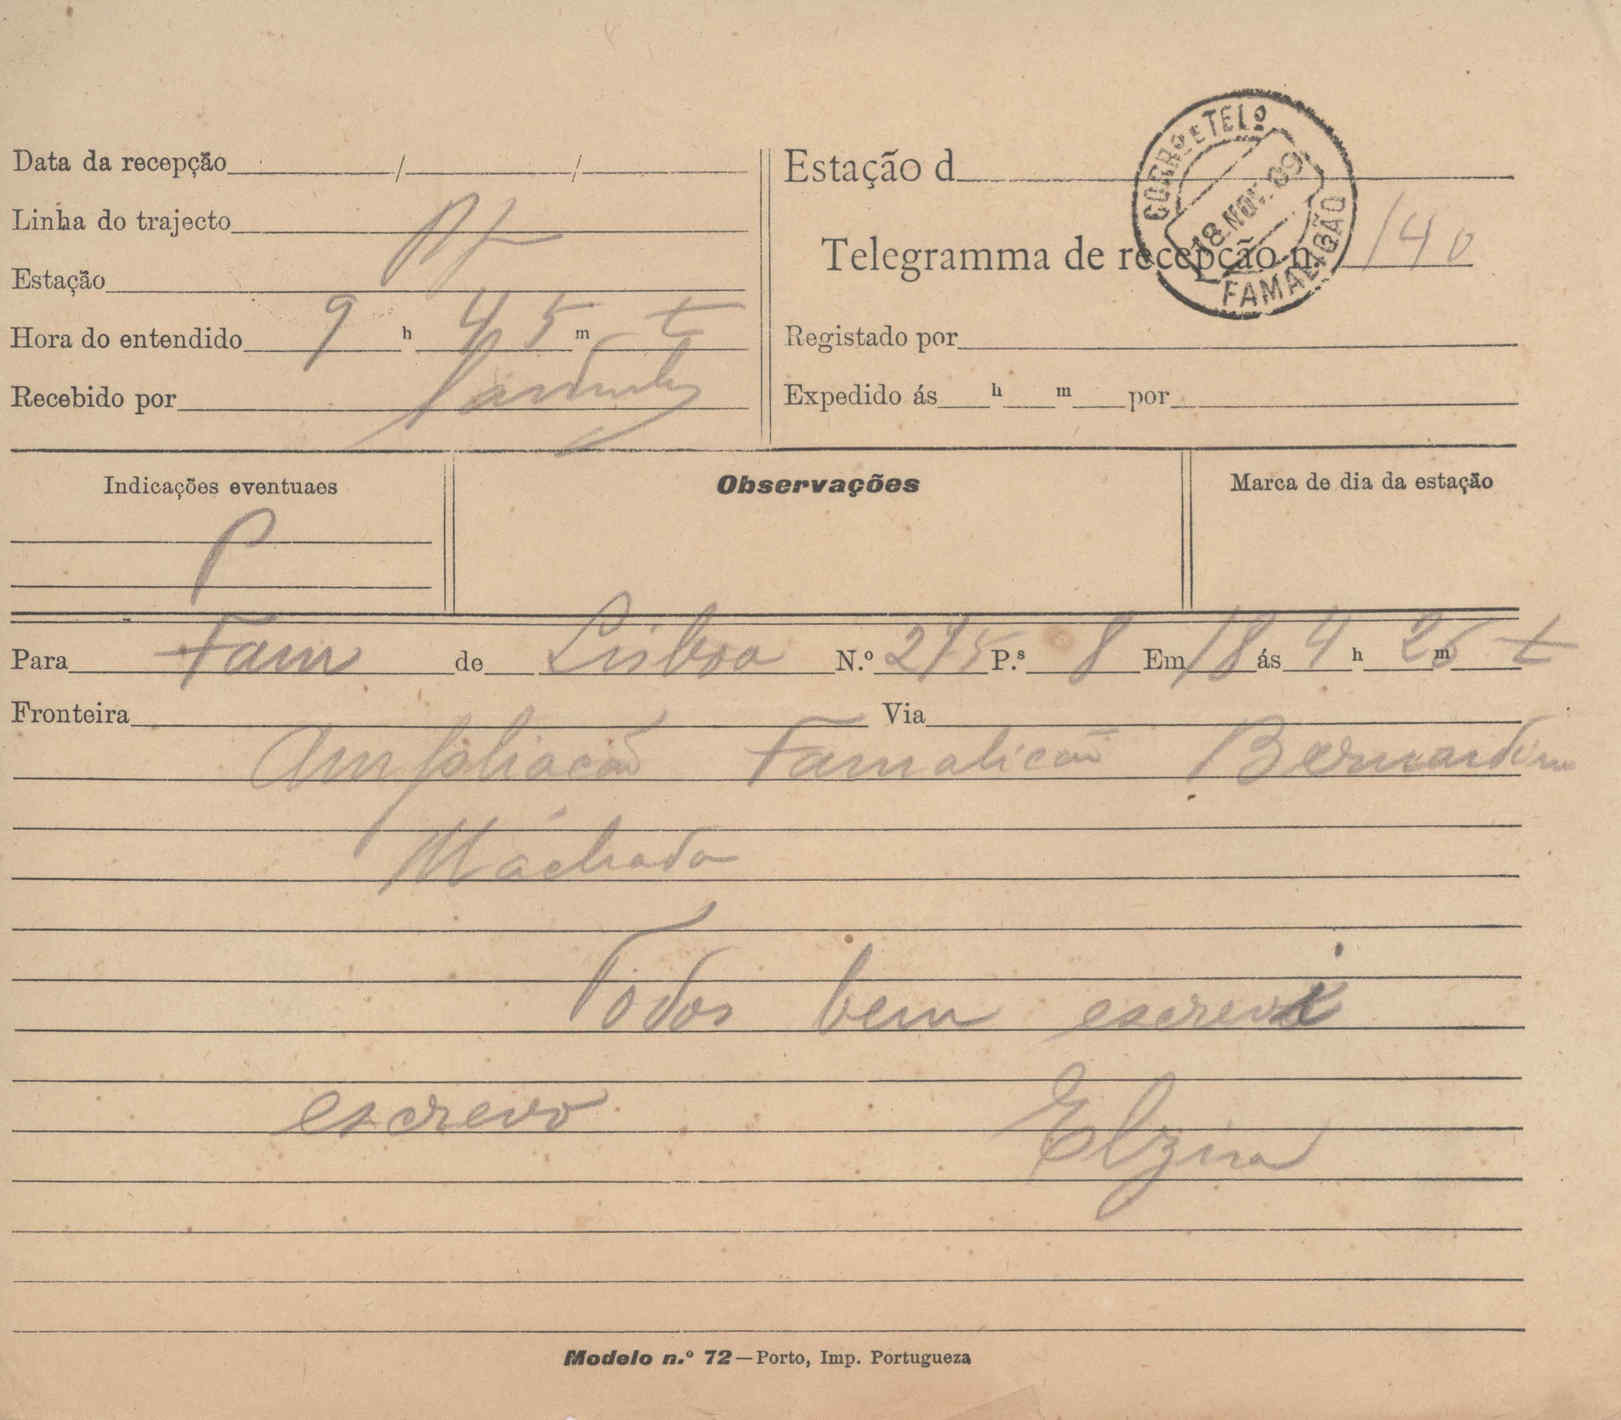 CORRº E TELº
18 NOV. 09
FAMALICÃO
Data da recepção / /
Linha do trajecto
Estação
Hora do entendido 9 h 45 m t
Recebido por
Estação d
Telegramma de recepção n. 140
Registado por
Expedido ás h m por
Indicações eventuaes
P
Observações
Marca de dia da estação
Para Fam de Lisboa N.º 275 P.ˢ 8 Em 18 ás 4 h 26 m t
Fronteira Via
Ampliacão Famalicão Bernardino
Máchado
Todos bem escrevi
escrevo Elzira
Modelo n.º 72—Porto, Imp. Portugueza